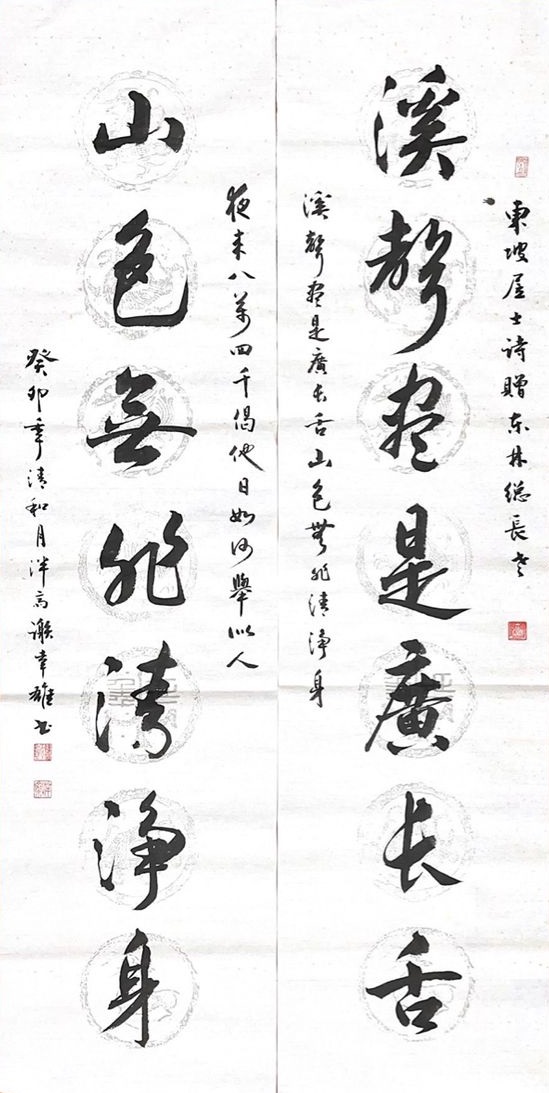 东坡居士诗赠东林總長老
溪聲尽是廣长舌
溪聲尽是廣长舌山色無非清净身
夜来八万四千偈他日如何舉似人
山色無非清净身
癸卯年清和月泮高謝幸雄书